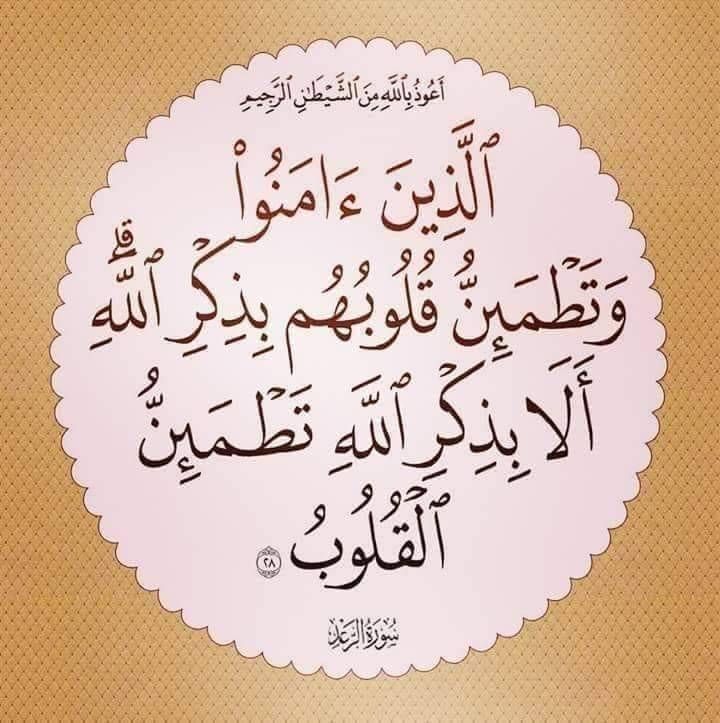 أَعُوذُ بِٱللَّهِ مِنَ ٱلشَّيْطَٰنِ ٱلرَّجِيمِ
ٱلَّذِينَ ءَامَنُوا۟
وَتَطْمَئِنُّ قُلُوبُهُم بِذِكْرِ ٱللَّهِ ۗ
أَلَا بِذِكْرِ ٱللَّهِ تَطْمَئِنُّ
ٱلْقُلُوبُ ٢٨
سُورَةُ الرَّعْدِ